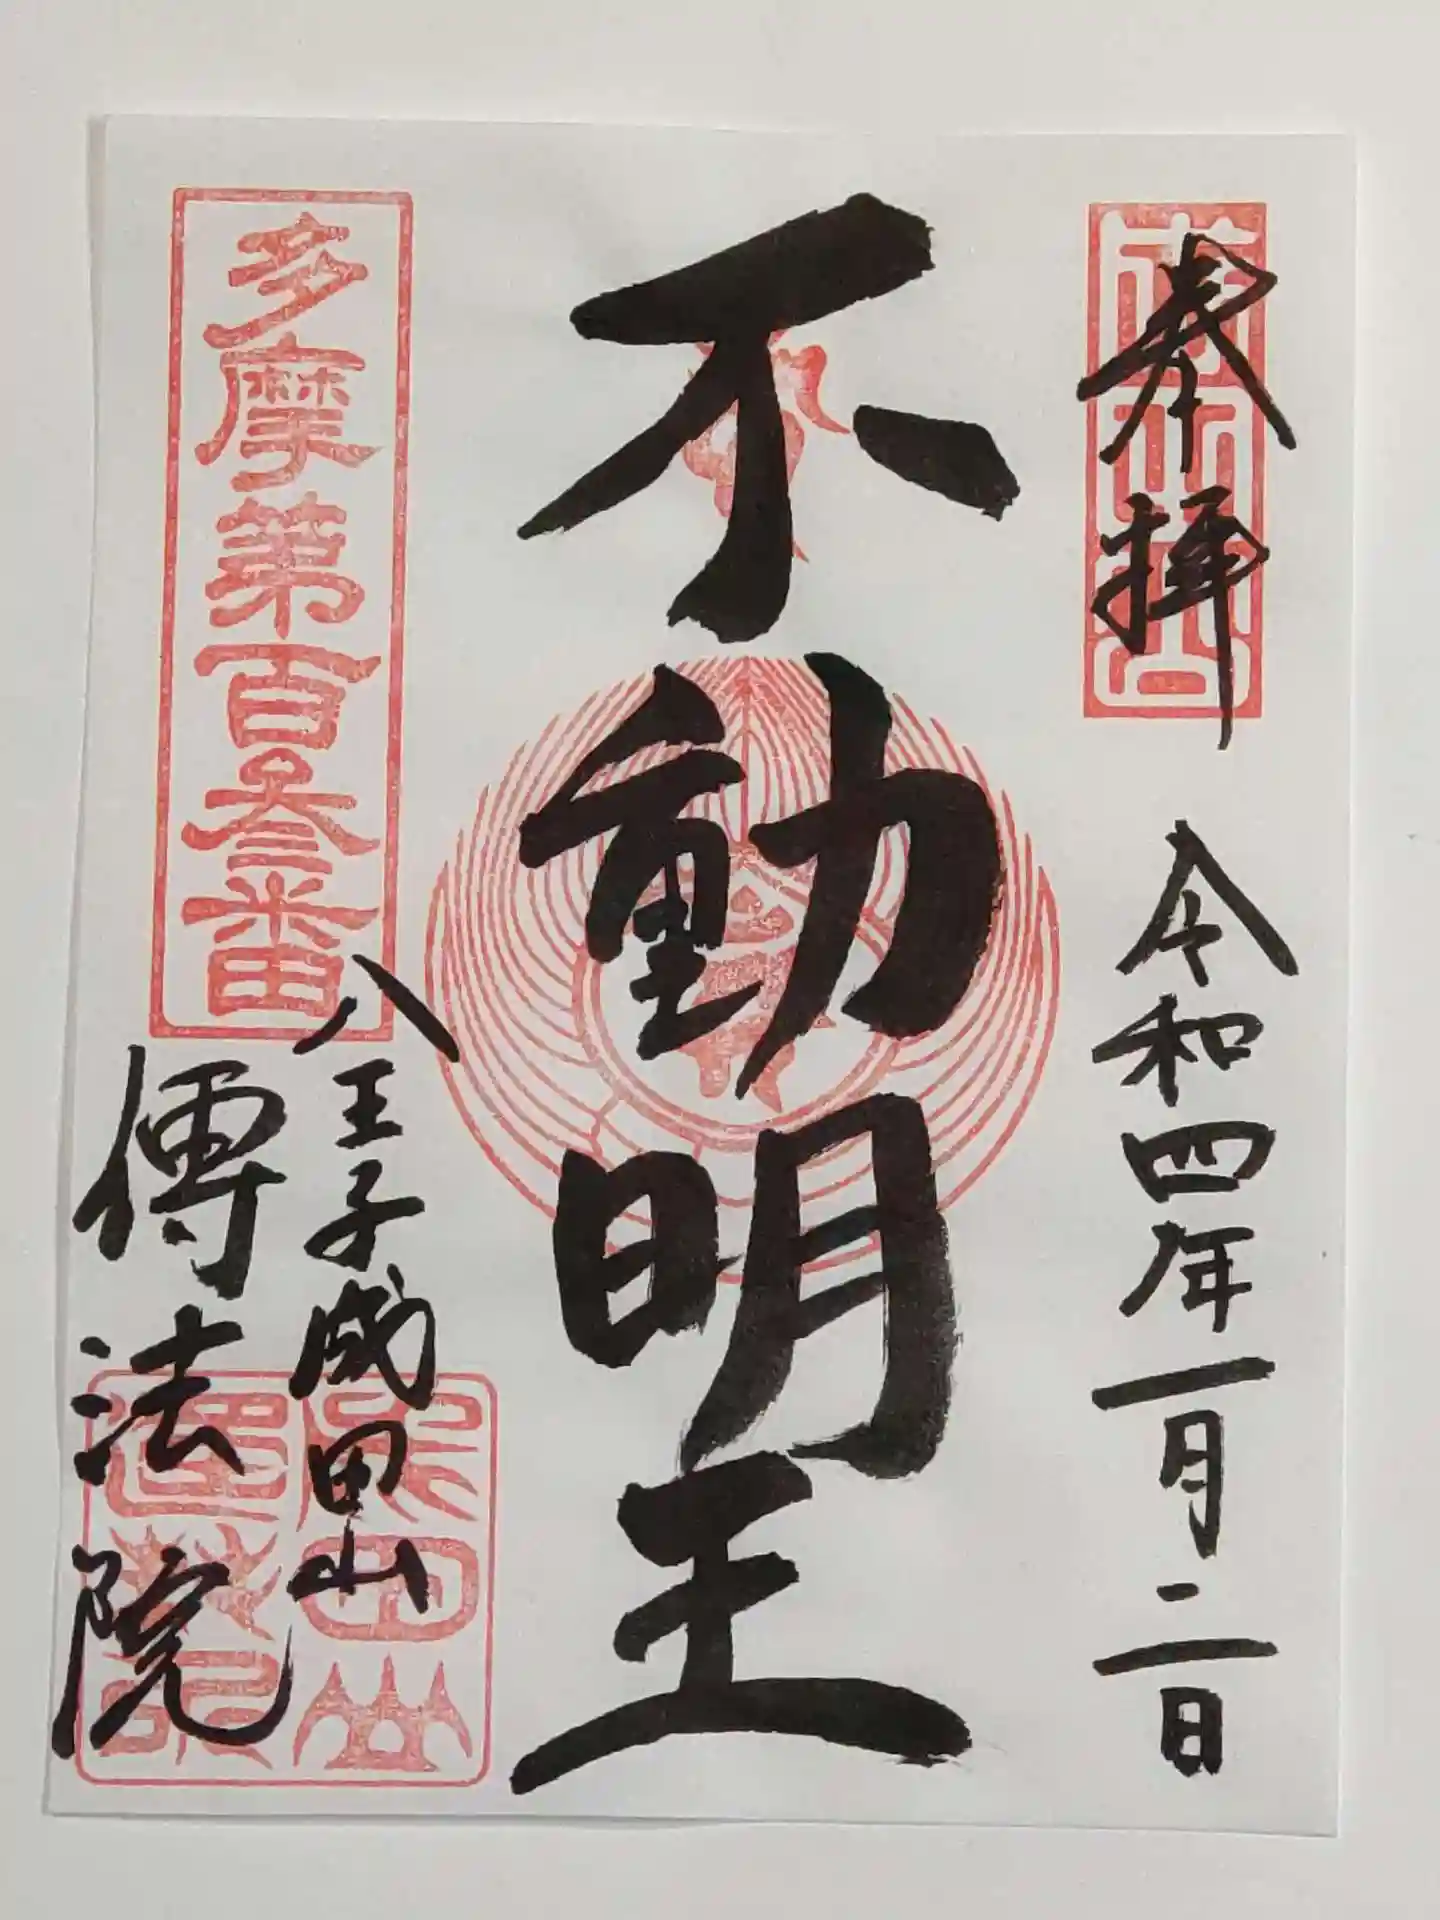 奉拝
令和四年一月二日
不動明王
多摩第百叁番
八王子成田山
傳法院